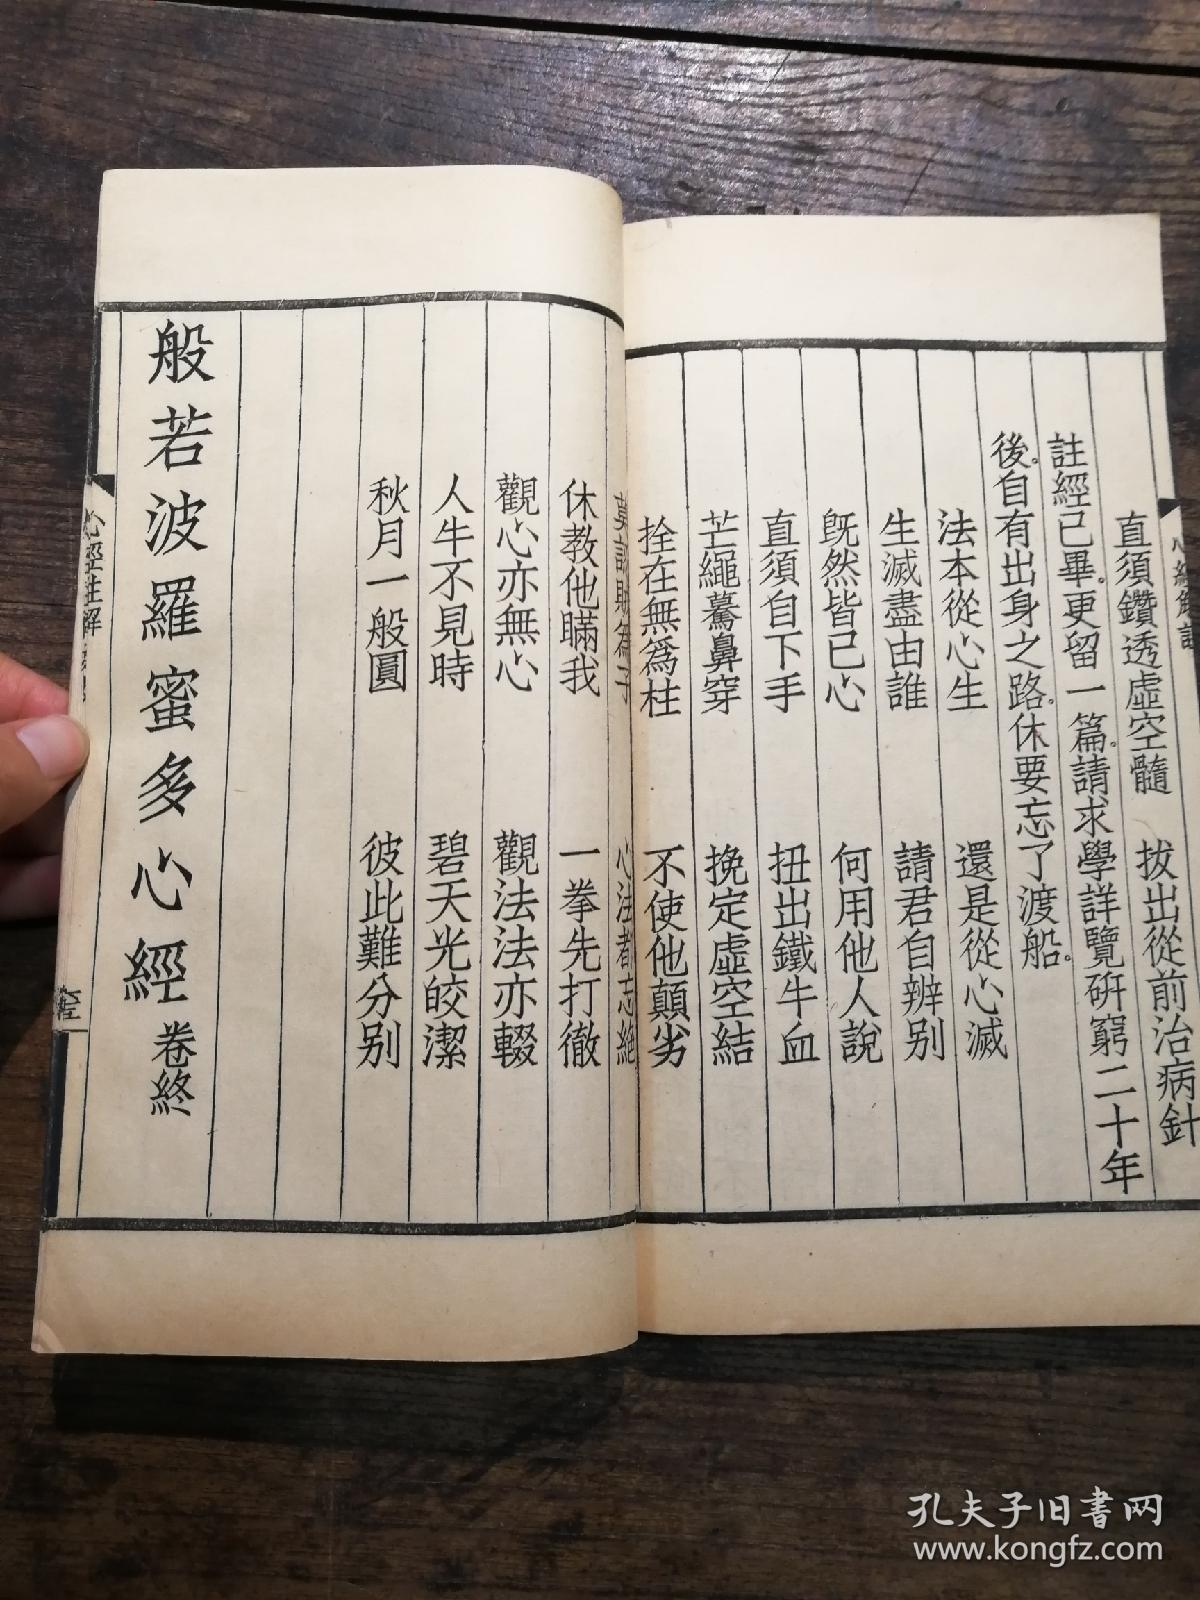 直須鑽透虛空髓　拔出從前治病針
註經已畢。更留一篇。請求學詳覽硏窮二十年
後。自有出身之路。休要忘了渡船。
法本從心生　還是從心滅
生滅盡由誰　請君自辨别
旣然皆已心　何用他人說
直須自下手　扭出鐵牛血
芒繩驀鼻穿　挽定虛空結
拴在無爲柱　不使他顛劣
心法都忘絶
休教他瞞我　一拳先打徹
觀心亦無心　觀法法亦輟
人牛不見時　碧天光皎潔
秋月一般圓　彼此難分别
般若波羅蜜多心經卷終
心經註解
孔夫子旧书网
www.kongfz.com